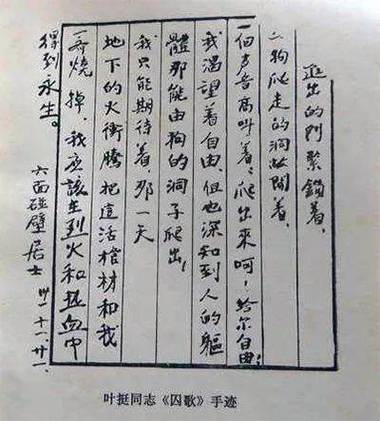 進出的门緊鎖着、
狗爬走的洞敞開着、
一個声音高叫着:爬出來呵!给尔自由!
我渴望着自由、但也深知到人的軀
體那能由狗的洞子爬出!
我只能期待着、那一天
地下的火衝騰把這活棺材和我
一齊燒掉、我应該在烈火和热血中
得到永生。
六面碰壁居士 卅一.十一.廿一.
叶挺同志《囚歌》手迹